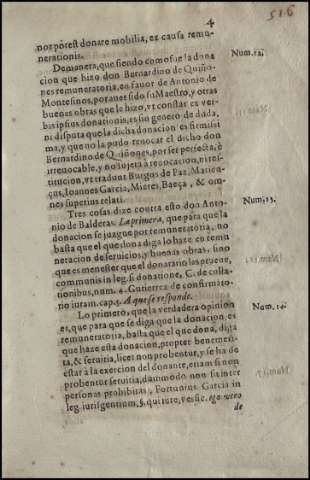 4
516
nor potest donare mobilia, ex causa remu-
nerationis.
De manera, que siendo como fue la dona
cion que hizo don Bernardino de Quiño-
nes remuneratoria, en fauor de Antonio de
Montesinos, por auer sido su Maestro, y otras
buenas obras que le hizo, vt constat ex ver-
bis ipsius donationis, es sin genero de duda,
ni disputa que la dicha donacion es firmissi
ma, y que no la pudo reuocar el dicho don
Bernardino de Quiñones, por ser perfecta, è
irreuocable, y no sujeta à reuocacion, ni resti
tucion, vt tradunt Burgos de Paz, Matien-
ço, Ioannes Garcia, Mieres, Baeça, & om-
nes superius relati.
Num. 12.
Tres cosas dize contra esto don Anto-
nio de Balderas. La primera, que para que la
donacion se juzgue por remuneratoria, no
basta que el que dona diga lo haze en remu
neracion de seruicios, y buenas obras, sino
que es menester que el donatario los prueue,
communis in leg. si donatione, C. de colla-
tionibus, num. 4. Gutierrez de confirmato-
rio iuram. cap. 5. A que se responde.
Num. 13.
Lo primero, que la verdadera opinion
es, que para que se diga que la donacion es
remuneratoria, basta que el que dona, diga
que haze esta donacion, propter benemeri-
ta, & seruitia, licet non probentur, y se ha de
estar à la exercion del donante, etiam si non
probentur seruitia, dummodo non sa inter
personas prohibitas, Fortunius Garcia in
leg. iurisgentium, §. quinuto, versic. ego vero
de
Num. 14.